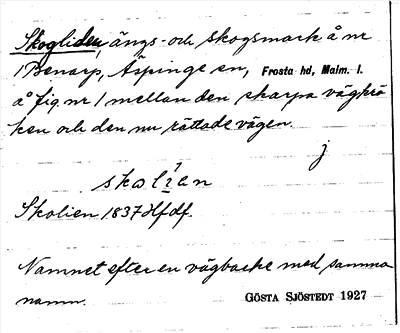 Skogliden, ängs- och skogsmark å nr
1 Benarp, Äspinge sn, Frosta hd, Malm. l.
å fig. nr 1 mellan den skarpa vägkrö
ken och den nu rättade vägen.
j
skolian
Skolien 1837 Hfdf.
Namnet efter en vägbacke med samma
namn.
GÖSTA SJÖSTEDT 1927